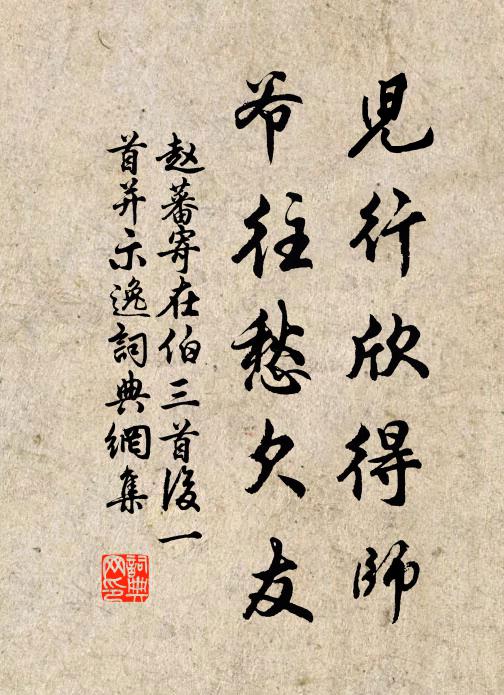 児行欣得師
爷往愁欠友
赵蕃寄在伯三首後一
首并示逸詞典網集
詞典
网印